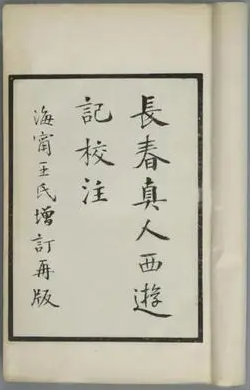 長春真人西遊
記校注
海甯王氏增訂再版